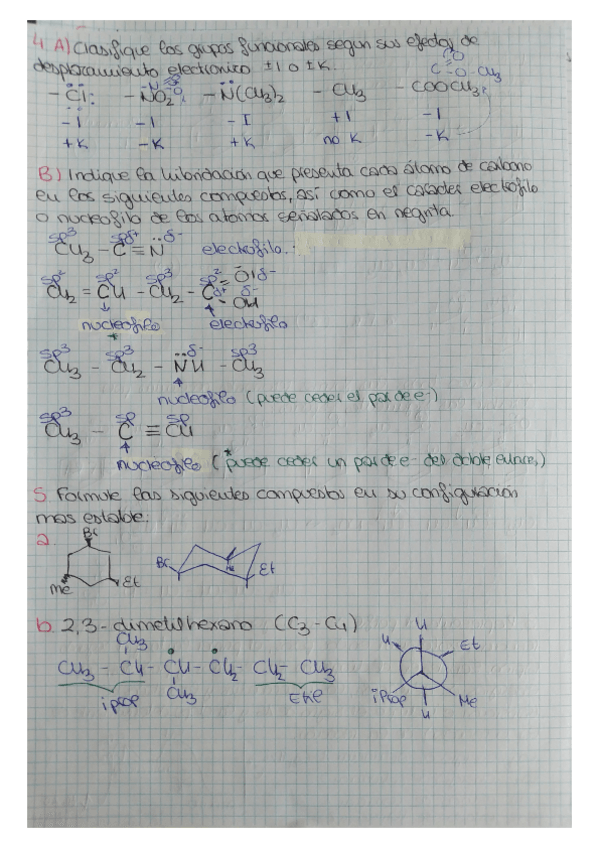 4. A) Clasifique los grupos funcionales segun sus efectos de
desplazamiento electronico ±I o ±K.
C=O O-CH3
- Cl: - NO2 - N(CH3)2 - CH3 - COOCH3
-I -I -I +I -I
+K -K +K no K -K
B) Indique la hibridación que presenta cada átomo de carbono
en los siguientes compuestos, así como el carácter electrofilo
o nucleofilo de los atomos señalados en negrita.
sp3 sp δ+ δ-
CH3 - C ≡ N electrofilo.
sp2 sp2 sp3 sp2 Oδ-
CH2 = CH - CH2 - C δ+ δ- OH
nucleofilo electrofilo
sp3 sp3 δ- sp3
CH3 - CH2 - NH - CH3
nucleofilo (puede ceder el par de e-)
sp3 sp sp
CH3 - C ≡ CH
nucleofilo (puede ceder un par de e- del doble enlace)
5. Formule los siguientes compuestos en su configuración
mas estable:
a.
Br Me Et
Br Me Et
b. 2,3-dimetilhexano (C3-C4)
CH3
CH3 - CH - CH - CH2 - CH2 - CH3
iprop CH3 Etilo
H H Et
iProp Me
H